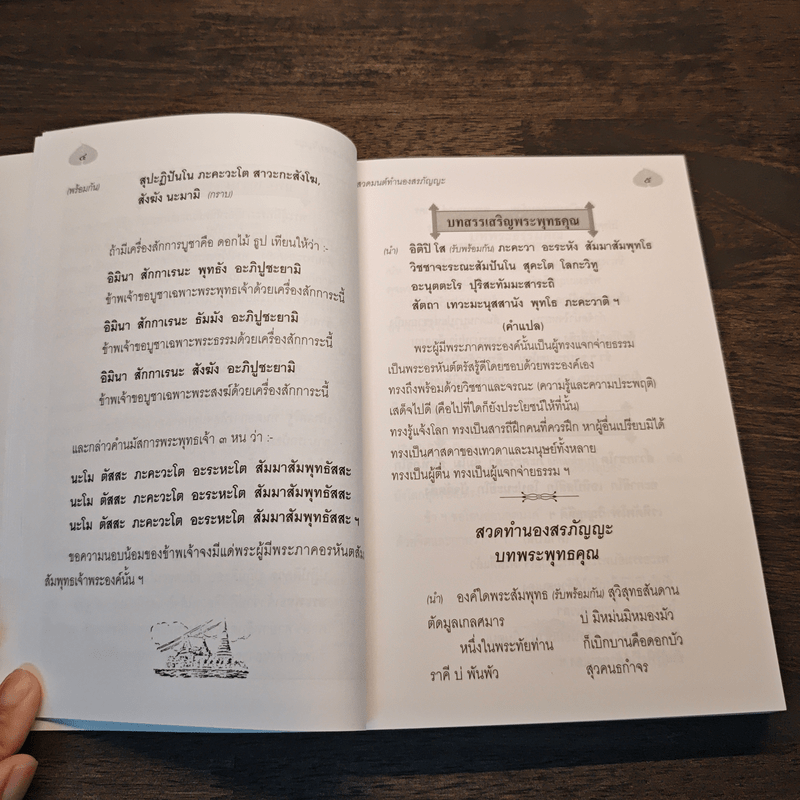 ๔
(พร้อมกัน) สุปะฏิปันโน ภะคะวะโต สาวะกะสังโฆ,
สังฆัง นะมามิ (กราบ)
ถ้ามีเครื่องสักการบูชาคือ ดอกไม้ ธูป เทียนให้ว่า :-
อิมินา สักกาเรนะ พุทธัง อะภิปูชะยามิ
ข้าพเจ้าขอบูชาเฉพาะพระพุทธเจ้าด้วยเครื่องสักการะนี้
อิมินา สักกาเรนะ ธัมมัง อะภิปูชะยามิ
ข้าพเจ้าขอบูชาเฉพาะพระธรรมด้วยเครื่องสักการะนี้
อิมินา สักกาเรนะ สังฆัง อะภิปูชะยามิ
ข้าพเจ้าขอบูชาเฉพาะพระสงฆ์ด้วยเครื่องสักการะนี้
และกล่าวคำนมัสการพระพุทธเจ้า ๓ หน ว่า :-
นะโม ตัสสะ ภะคะวะโต อะระหะโต สัมมาสัมพุทธัสสะ
นะโม ตัสสะ ภะคะวะโต อะระหะโต สัมมาสัมพุทธัสสะ
นะโม ตัสสะ ภะคะวะโต อะระหะโต สัมมาสัมพุทธัสสะ ฯ
ขอความนอบน้อมของข้าพเจ้าจงมีแด่พระผู้มีพระภาคอรหันตสัมมา
สัมพุทธเจ้าพระองค์นั้น ฯ
สวดมนต์ทำนองสรภัญญะ
๕
บทสรรเสริญพระพุทธคุณ
(นำ) อิติปิ โส (รับพร้อมกัน) ภะคะวา อะระหัง สัมมาสัมพุทโธ
วิชชาจะระณะสัมปันโน สุคะโต โลกะวิทู
อะนุตตะโร ปุริสะทัมมะสาระถิ
สัตถา เทวะมะนุสสานัง พุทโธ ภะคะวาติ ฯ
(คำแปล)
พระผู้มีพระภาคพระองค์นั้นเป็นผู้ทรงแจกจ่ายธรรม
เป็นพระอรหันต์ตรัสรู้ดีโดยชอบด้วยพระองค์เอง
ทรงถึงพร้อมด้วยวิชชาและจรณะ (ความรู้และความประพฤติ)
เสด็จไปดี (คือไปที่ใดก็ยังประโยชน์ให้ที่นั้น)
ทรงรู้แจ้งโลก ทรงเป็นสารถีฝึกคนที่ควรฝึก หาผู้อื่นเปรียบมิได้
ทรงเป็นศาสดาของเทวดาและมนุษย์ทั้งหลาย
ทรงเป็นผู้ตื่น ทรงเป็นผู้แจกจ่ายธรรม ฯ
สวดทำนองสรภัญญะ
บทพระพุทธคุณ
(นำ) องค์ใดพระสัมพุทธ (รับพร้อมกัน) สุวิสุทธสันดาน
ตัดมูลเกลศมาร บ่ มิหม่นมิหมองมัว
หนึ่งในพระทัยท่าน ก็เบิกบานคือดอกบัว
ราคี บ่ พันพัว สุวคนธกำจร